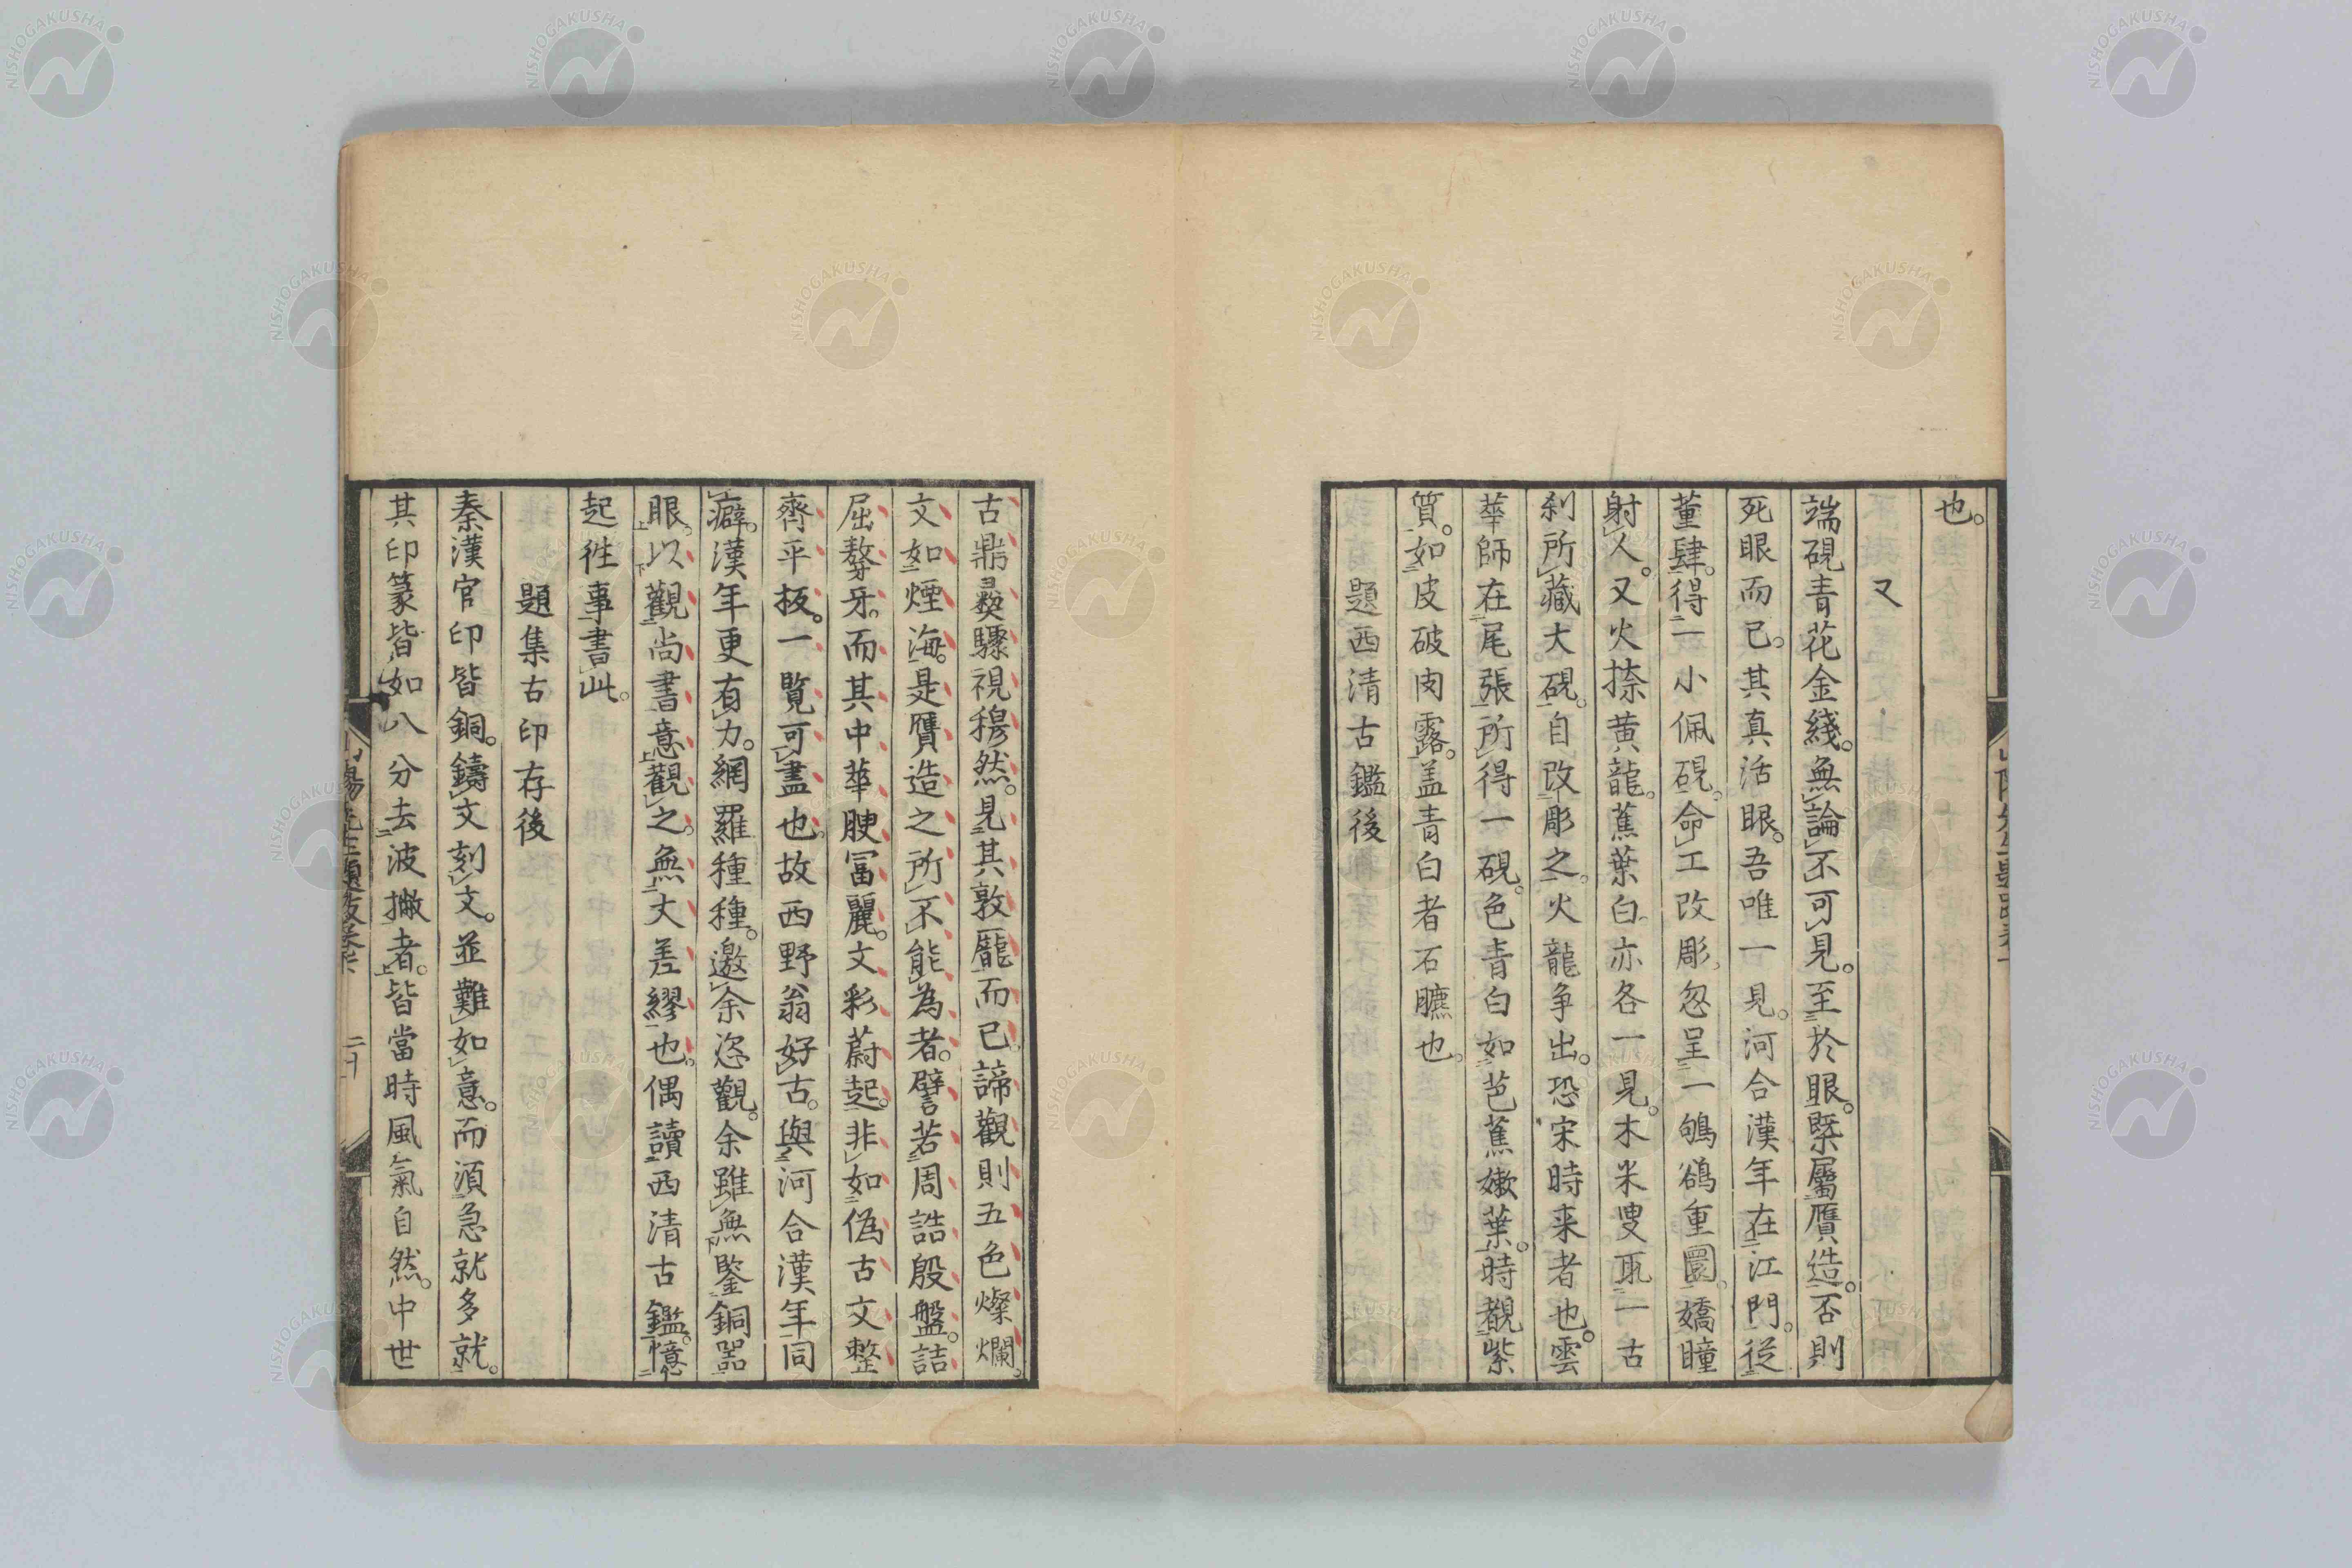 也。
又
端硯青花金綫。無論不可見。至於眼。槩屬贋造。否則
死眼而已。其真活眼。吾唯一見。河合漢年在江門。從
董肆。得一小佩硯。命工改彫。忽呈一鴝鵒重圜。嬌瞳
射人。又火捺黄龍。蕉葉白。亦各一見。木米叟。一古
刹所藏大硯。自改彫之。火龍争出。恐宋時来者也。雲
華師在尾張。所得一硯。色青白如芭蕉嫩葉。時覩紫
質。如皮破肉露。盖青白者石臕也。
題西清古鑑後
古鼎彝驟視穆然。見其敦厖而已。諦觀則五色燦爛。
文如煙海。是贋造之所不能為者。譬若周誥殷盤。詰
屈聱牙。而其中華腴冨麗。文彩蔚起。非如偽古文整
齊平板。一覧可盡也。故西野翁好古。與河合漢年同
癖。漢年更有力。網羅種種。邀余恣觀。余雖無鑒銅噐
眼。以觀尚書意觀之。無大差繆也。偶讀西清古鑑。憶
起徃事書此。
題集古印存後
秦漢官印皆銅。鑄文刻文。並難如意。而湏急就多就。
其印篆皆如八分去波撇者。皆當時風氣自然。中世
NISHOGAKUSHA